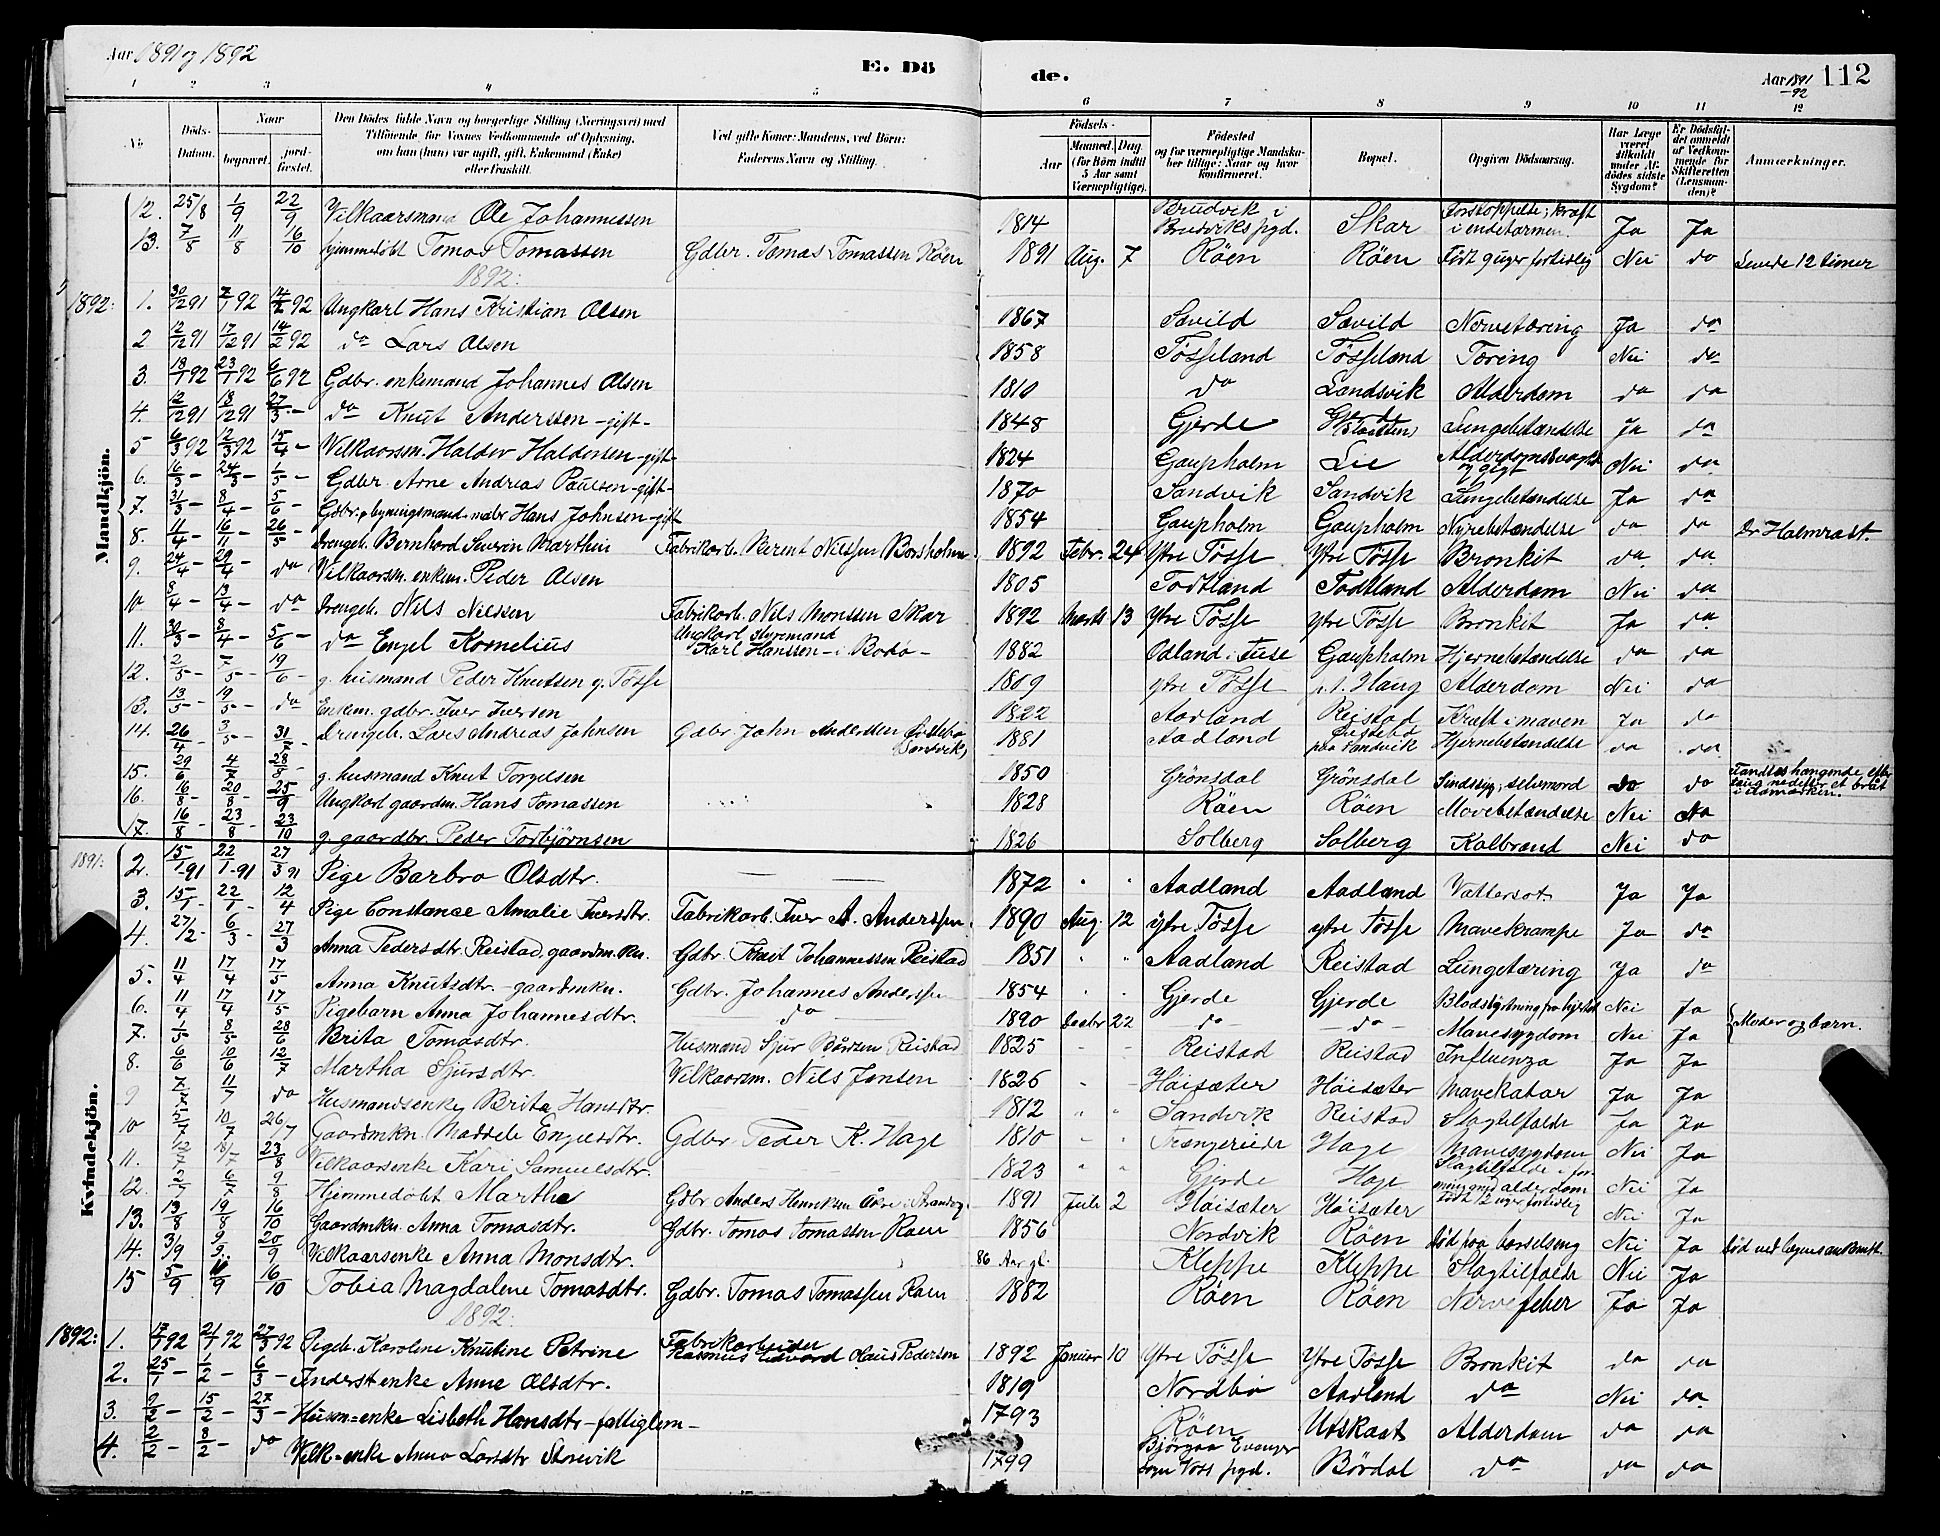 Aar 1891 og 1892
E. Dö
de.
Aar 1891-92
112
1 2 3 4 5 6 7 8 9 10 11 12
No.
Döds-Datum.
Naar
begravet.
jord-fæstet.
Den Dödes fulde Navn og borgerlige Stilling (Næringsvei) med
Tilföiende for Voxnes Vedkommende af Oplysning,
om han (hun) var ugift, gift, Enkemand (Enke)
eller fraskilt.
Ved gifte Koner: Mandens, ved Börn:
Faderens Navn og Stilling.
Födsels-
Aar
Maaned. Dag.
(for Börn indtil
5 Aar samt
Værnepligtige).
Födested
og for værnepligtige Mandska-
ber tillige: Naar og hvor
konfirmeret.
Bopæl.
Opgiven Dödsaarsag.
Har Læge
været
tilkaldt
under Af-
dödes sidste
Sygdom?
Er Dödsfal-
det anmeldt
af Vedkom-
mende for
Skifteretten
(Lensman-
den)?
Anmærkninger.
Mandkjön.
12. 25/8 1/9 22/9 Vilkaarsmand Ole Johannessen 1814 Brudvik i Brudviks pgd. Skar Forstoppelse; kræft i endetarmen. Ja Ja
13. 7/8 11/8 16/10 hjemmedöbt Tomas Tomassen Gdbr. Tomas Tomassen Röen 1891 Aug. 7 Röen Röen Födt 9 uger fortidlig Nei do Levede 12 timer
1892:
1892: 1. 30/12 91 7/1 92 14/2 92 Ungkarl Hans Kristian Olsen 1867 Sævild Sævild Nervetæring Ja do
2 12/12 91 17/12 91 14/2 92 do Lars Olsen 1858 Tösseland Tösseland Tæring Nei do
3. 18/1 92 23/1 92 6/6 92 Gdbr. enkemand Johannes Olsen 1810 do Landsvik Alderdom do do
4. 12/12 91 18/12 91 27/3 - do Knut Anderssen - gift - 1848 Gjerde Gjerde Lungebetændelse Ja do
5 6/3 92 12/3 92 15/4 - Vilkaarsm. Haldor Haldorsen - gift - 1824 Gaupholm Lie Alderdomssvaghed og gigt Nei do
6. 16/3 - 24/3 - 1/5 - Gdbr Arne Andreas Paulsen - gift - 1870 Sandvik Sandvik Lungebetændelse Ja do
7. 31/3 - 8/4 - 5/6 - Gdbr. & bygningsmand maler Hans Johnsen - gift 1854 Gaupholm Gaupholm Nyrebetændelse do do Dr Halmrast.
8. 11/4 - 16/11 - 26/5 - Drengeb. Bernhard Severin Martin Fabrikarb. Berent Nilssen Borsholm 1892 Febr. 24 Ytre Tösse Ytre Tösse Bronkit do do
9. 24/4 - 29/4 - do Vilkaarsm. enkem. Peder Olsen 1805 Todtland Todtland Alderdom Nei do
10 8/4 - 13/4 - do Drengeb. Nils Nilssen Fabrikarb. Nils Monssen Skar 1892 Marts 13 Ytre Tösse ytre Tösse Bronkit Ja do
11. 30/3 - 8/4 - 5/6 - do Engel Kornelius Ungkarl styremand Karl Hanssen - i Bodø - 1882 Odland i Fuse Gaupholm Hjernebetændelse do do
12. 2/5 - 7/5 - 19/6 - g. husmand Peder Knutsen y. Tösse 1809 ytre Tösse Haug Alderdom Nei do
13. 13/5 - 19/5 - do Enkem. gdbr. Iver Iversen 1822 Aadland Reistad Kræft i maven Ja do
14. 26/4 - 3/5 - 31/7 - Drengeb. Lars Andreas Johnsen Gdbr. John Anderssen Sandvik 1881 Aadland paa Sandvik Hjernebetændelse do do
15. 29/6 4/7 28/8 - g. husmand Knut Torgelsen 1850 Grönsdal Grönsdal Sindssyg, selvmord do do Fandtes hængende efter taug nedetter et bråt i udmarken.
16. 16/8 - 20/8 - 25/9 Ungkarl gaardm. Hans Tomassen 1828 Röen Röen Mavebetændelse Nei
17. 16/8 - 23/8 - 23/10 g. gaardbr. Peder Torbjørnsen 1826 Solberg Solberg Kolbrand Nei do
Kvindekjön.
1891: 2. 15/1 91 22/1 91 27/3 91 Pige Barbro Olsdtr. 1872 Aadland Aadland Vattersot Ja Ja
3. 15/1 - 22/1 - 12/4 Pige Constance Amalie Iversdtr. Fabrikarb. Iver A. Anderssen 1890 Aug. 12 ytre Tösse ytre Tösse Mavekrampe Ja do
4. 27/2 - 6/3 - 27/3 Anna Pedersdtr. Reistad, gaardm. kn. Gdbr. Knut Johannessen Reistad 1851 Aadland Reistad Lungetæring Ja do
5. 11/4 17/4 17/5 Anna Knutsdtr. - gaardmkn. Gdbr. Johannes Anderssen 1854 Gjerde Gjerde Blodstyrtning fra hjertet Nei Ja
6. 11/4 17/4 17/5 Pigebarn Anna Johannesdtr. do 1890 Decbr 22 do do Mavesygdom Nei Ja Moder og barn.
7. 1/5 8/5 28/6 Brita Tomasdtr. Husmand Sjur Bårdsen Reistad 1825 Reistad Reistad Influenza Ja Ja
8. 6/6 10/6 12/7 Martha Sjursdtr. Vilkaarsm. Nils Jensen 1826 Höisæter Höisæter Mavekatar Ja Ja
9 7/7 11/7 do Husmandsenke Brita Hansdtr. 1812 Sandvik Reistad Slagtilfælde Ja Ja
10 5/7 10/7 26/7 Gaardmkn. Maddele Engelsdtr. Gdbr. Peder K. Hage 1810 Trengereide Hage Mavesygdom Nei Ja
11. 12/7 18/7 23/8 Vilkaarsenke Kari Samuelsdtr. 1823 Gjerde Hage Slagtilfælde i forening med alderdom Nei Ja
12. 2/7 6/7 9/8 Hjemmedöbt Martha Gdbr. Anders Henriksen 1891 Juli 2 Höisæter Höisæter Födt 12 uger fortidlig Nei Ja
13. 13/8 19/8 16/10 Gaardmkn. Anna Tomasdtr. Gdbr. Tomas Tomassen Röen 1856 Nordvik Röen död paa barselseng Nei Ja död ved lægens ankomst
14. 3/9 9/9 20/9 Vilkaarsenke Anna Monsdtr. 86 Aar gl. Kleppe Kleppe Slagtilfælde Nei Ja
15 5/9 11/9 16/10 Tobia Magdalene Tomasdtr. Gdbr. Tomas Tomassen Röen 1882 Röen Röen Nervefeber Ja Ja
1892:
1892: 1. 17/1 92 21/1 92 27/3 92 Pigeb. Karoline Knutine Petrine Fabrikarbeider Rasmus Edvard Claus Pedersen 1892 Januar 10 Ytre Tösse Ytre Tösse Bronkit do do
2. 25/1 - 1/2 - 6/3 - Inderstenke Anne Olsdtr. 1819 Nordbø Aadland do Nei do
3. 9/2 - 15/2 - 27/3 - Husm-enke Lisbeth Hansdtr - fattiglem - 1793 Röen Utskaat Alderdom do do
4. 2/2 - 8/2 - do Vilk-enke Anna Larsdtr Storvik 1799 Bjørgaa Evanger sogn Voss pgd. Bördal do do do